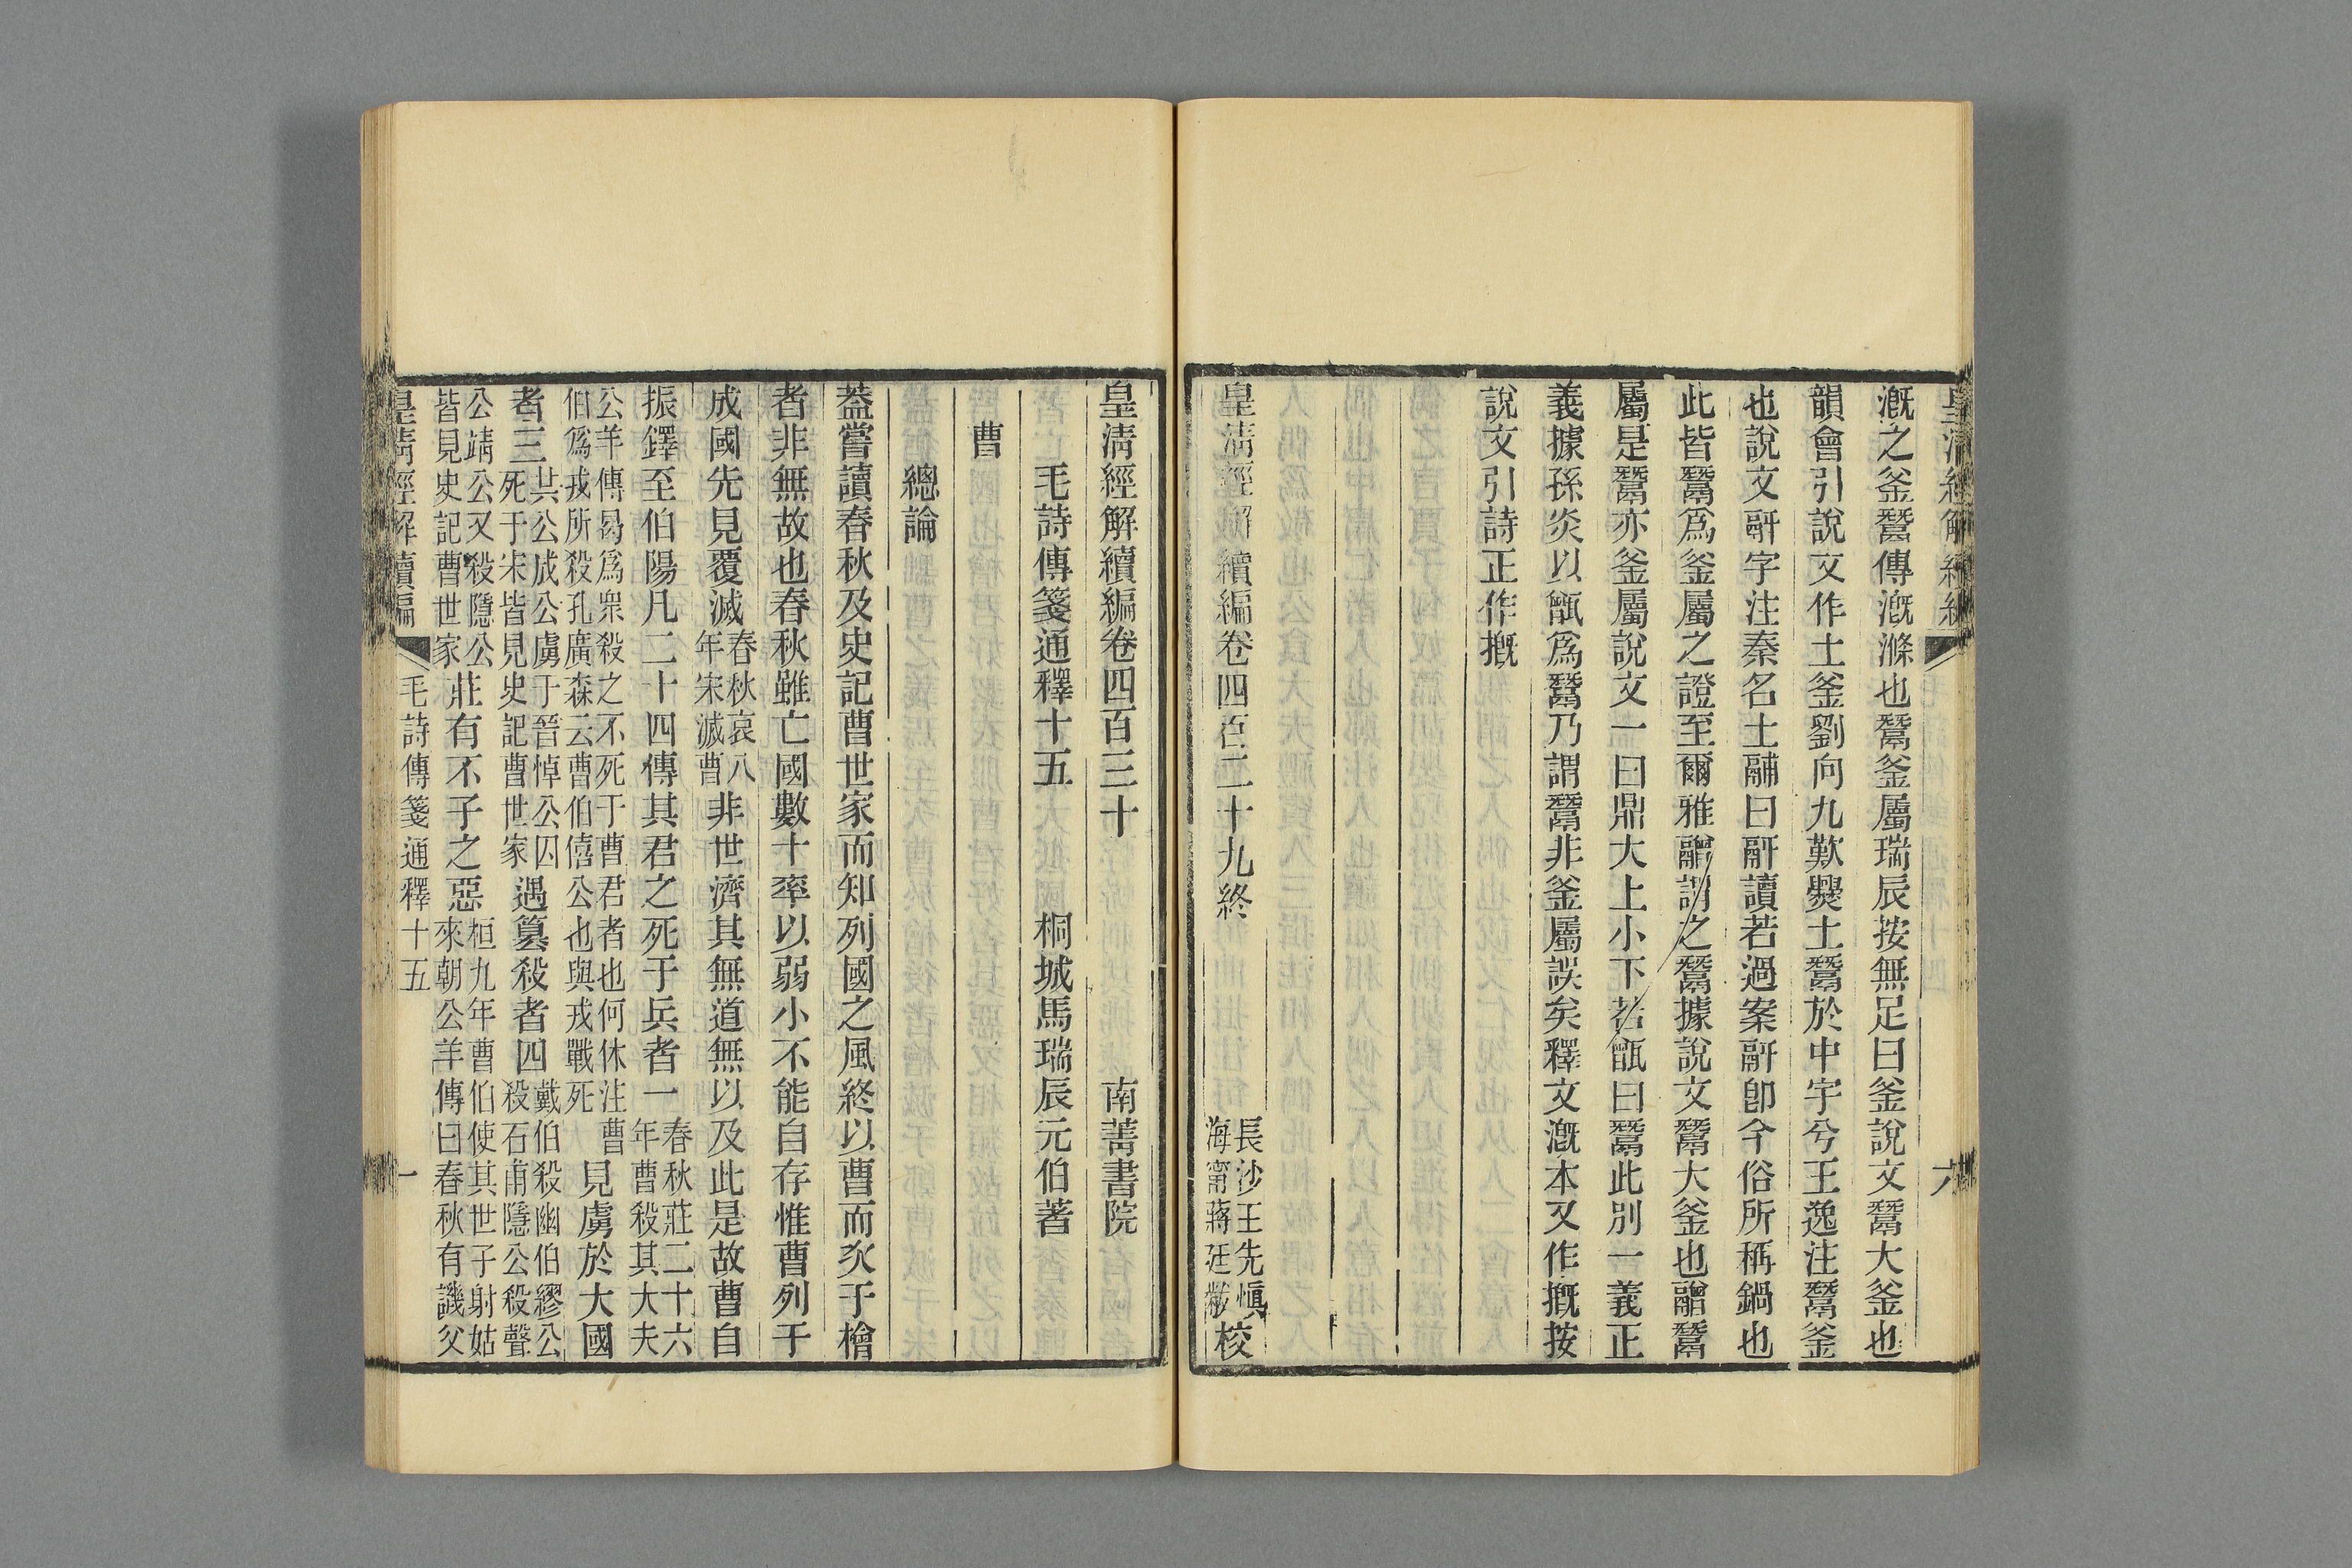 皇清經解續編
六
漑之釜鬵傳漑滌也鬵釜屬瑞辰按無足曰釜說文鬵大釜也
韻會引說文作土釜劉向九歎爨土鬵於中宇兮王逸注鬵釜
也說文䰙字注秦名土鬴曰䰙讀若過案䰙卽今俗所稱鍋也
此皆鬵爲釜屬之證至爾雅䰝謂之鬵據說文鬵大釜也䰝鬵
屬是鬵亦釜屬說文一曰鼎大上小下若甑曰鬵此別一義正
義據孫炎以甑爲鬵乃謂鬵非釜屬誤矣釋文漑本又作摡按
說文引詩正作摡
皇淸經解續編卷四百二十九終
長沙王先愼
海甯蔣廷黻
校
皇淸經解續編卷四百三十 南菁書院
毛詩傳箋通釋十五 桐城馬瑞辰元伯著
曹
總論
葢嘗讀春秋及史記曹世家而知列國之風終以曹而次于檜
者非無故也春秋雖亡國數十率以弱小不能自存惟曹列于
成國先見覆滅春秋哀八年宋滅曹非世濟其無道無以及此是故曹自
振鐸至伯陽凡二十四傳其君之死于兵者一春秋莊二十六年曹殺其大夫
公羊傳曷爲衆殺之不死于曹君者也何休注曹伯爲戎所殺孔廣森云曹伯僖公也與戎戰死見虜於大國
者三共公成公虜于晉悼公囚死于宋皆見史記曹世家遇篡殺者四戴伯殺幽伯繆公殺石甫隱公殺聲
公靖公又殺隱公皆見史記曹世家莊有不子之惡桓九年曹伯使其世子射姑來朝公羊傳曰春秋有譏父
皇淸經解續編
毛詩傳箋通釋十五
一